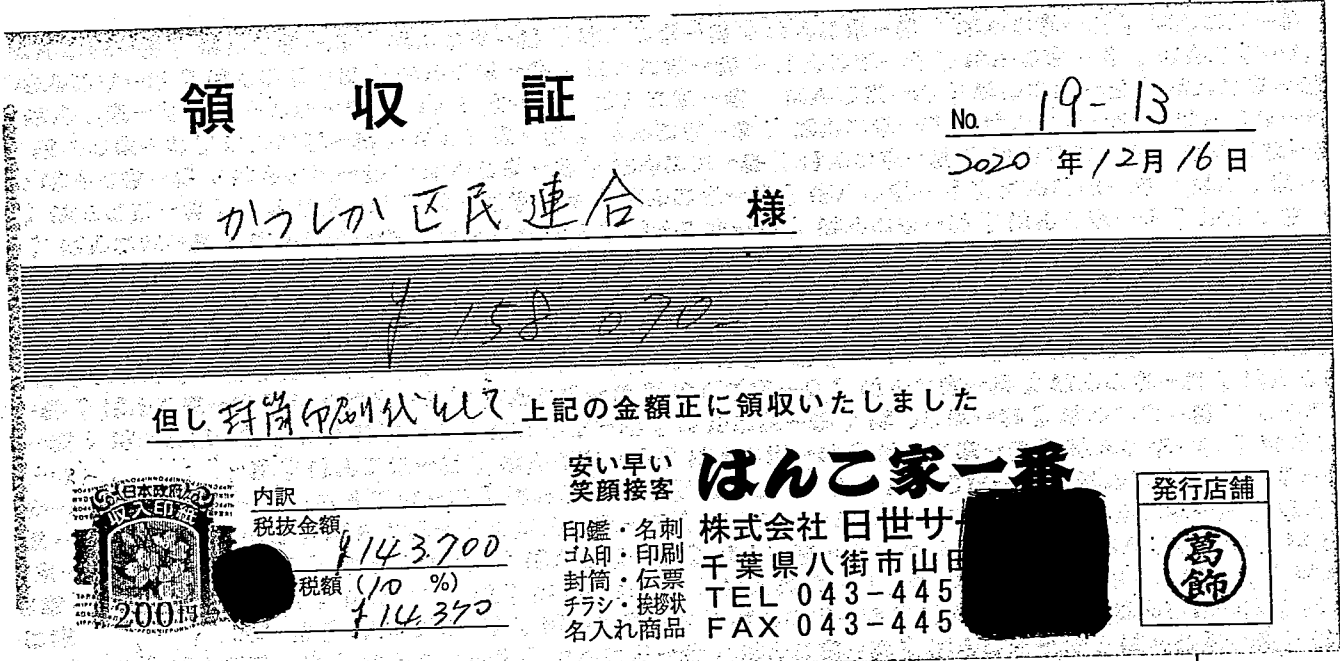 領収証
No. 19-13
2020年12月16日
かつしか区民連合 様
¥158,070-
但し 封筒印刷代として 上記の金額正に領収いたしました
日本政府
収入印紙
200円
内訳
税抜金額
¥143,700
税額(10 %)
¥14,370
安い早い
笑顔接客
はんこ家一番
印鑑・名刺
ゴム印・印刷
封筒・伝票
チラシ・挨拶状
名入れ商品
株式会社 日世サ
千葉県八街市山田
TEL 043-445
FAX 043-445
発行店舗
葛飾